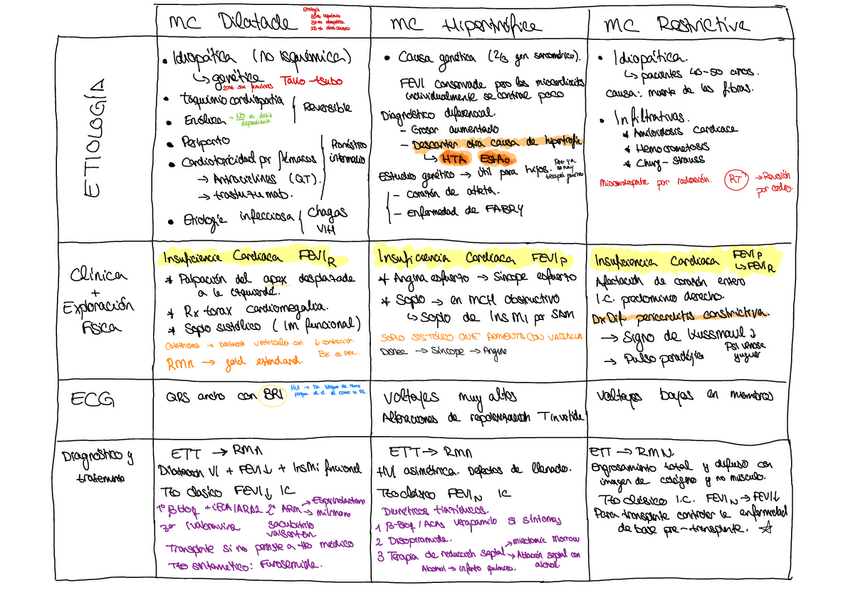 MC Dilatada
Etiología
MC Hipertrófica
MC Restrictiva
ETIOLOGÍA
• Idiopática (no isquémica)
↳ genética
Tako-tsubo
• Taquimiocardiopatía
• Enólica →
Reversible
• Periparto
• Cardiotoxicidad por fármacos
→ Antraciclinas (QT).
→ trastuzumab.
Pronóstico
intermedio
• Etiología infecciosa
Chagas
VIH
• Causa genética (2/3 gen sarcomérico).
FEVI conservada pero los miocardiocitos
individualmente se contrae poco
Diagnóstico diferencial.
- Grosor aumentado
- Descartar otra causa de hipertrofia
↳ HTA EstAo
Estudio genético → útil para hijos.
- corazón de atleta.
- enfermedad de FABRY
• Idiopática.
↳ pacientes 40-50 años.
causa: muerte de las fibras.
• Infiltrativas
* Amiloidosis cardiaca
* Hemocromatosis
* Churg-strauss
Miocardiopatía por radiación
RT
Clínica
+
Exploración
Física
Insuficiencia Cardiaca FEVI R
* Palpación del apex desplazada
a la izquierda.
* Rx torax cardiomegalia.
* Soplo sistólico (IM funcional)
RMN → gold estandard.
Insuficiencia Cardiaca FEVI P
* Angina esfuerzo → Síncope esfuerzo
* Soplo → en MCH obstructivo
↳ Soplo de Ins Mi por SAM
SOPLO SISTÓLICO QUE AUMENTA CON VALSALVA
Disnea → Síncope → Angina
Insuficiencia Cardiaca FEVI P
↳ FEVI R
Afectación de corazón entero
I.C. predominio derecho.
Dx Dif. pericarditis constrictiva.
→ Signo de kussmaul
→ Pulso paradójico
ECG
QRS ancho con BRI
Voltajes muy altos
Alteraciones de repolarización T invertida
Voltajes bajos en miembros
Diagnóstico y
tratamiento
ETT → RMN
Dilatación VI + FEVI↓ + InsMi funcional
Tto clásico FEVI↓ IC
1º β-bloq + IECA/ARA2 2º ARM
3º Ivabradina
sacubitrilo
valsartan
Transplante si no persiste a tto médico
Tto sintomático: Furosemida.
ETT → RMN
HVI asimétrica. Defectos de llenado.
Tto clásico FEVI N IC
Diuréticos tiazídicos.
1 β-Bloq / ACAs verapamilo si síntomas
2 Disopiramida.
3 Terapia de reducción septal
→ miectomía morrow
→ Ablación septal con
alcohol
Alcohol → infarto químico.
ETT → RMN.
Engrosamiento total y difuso con
imagen de colágeno y no músculo.
Tto clásico I.C. FEVI N → FEVI↓
Para transplante controlar la enfermedad
de base pre-transplante.